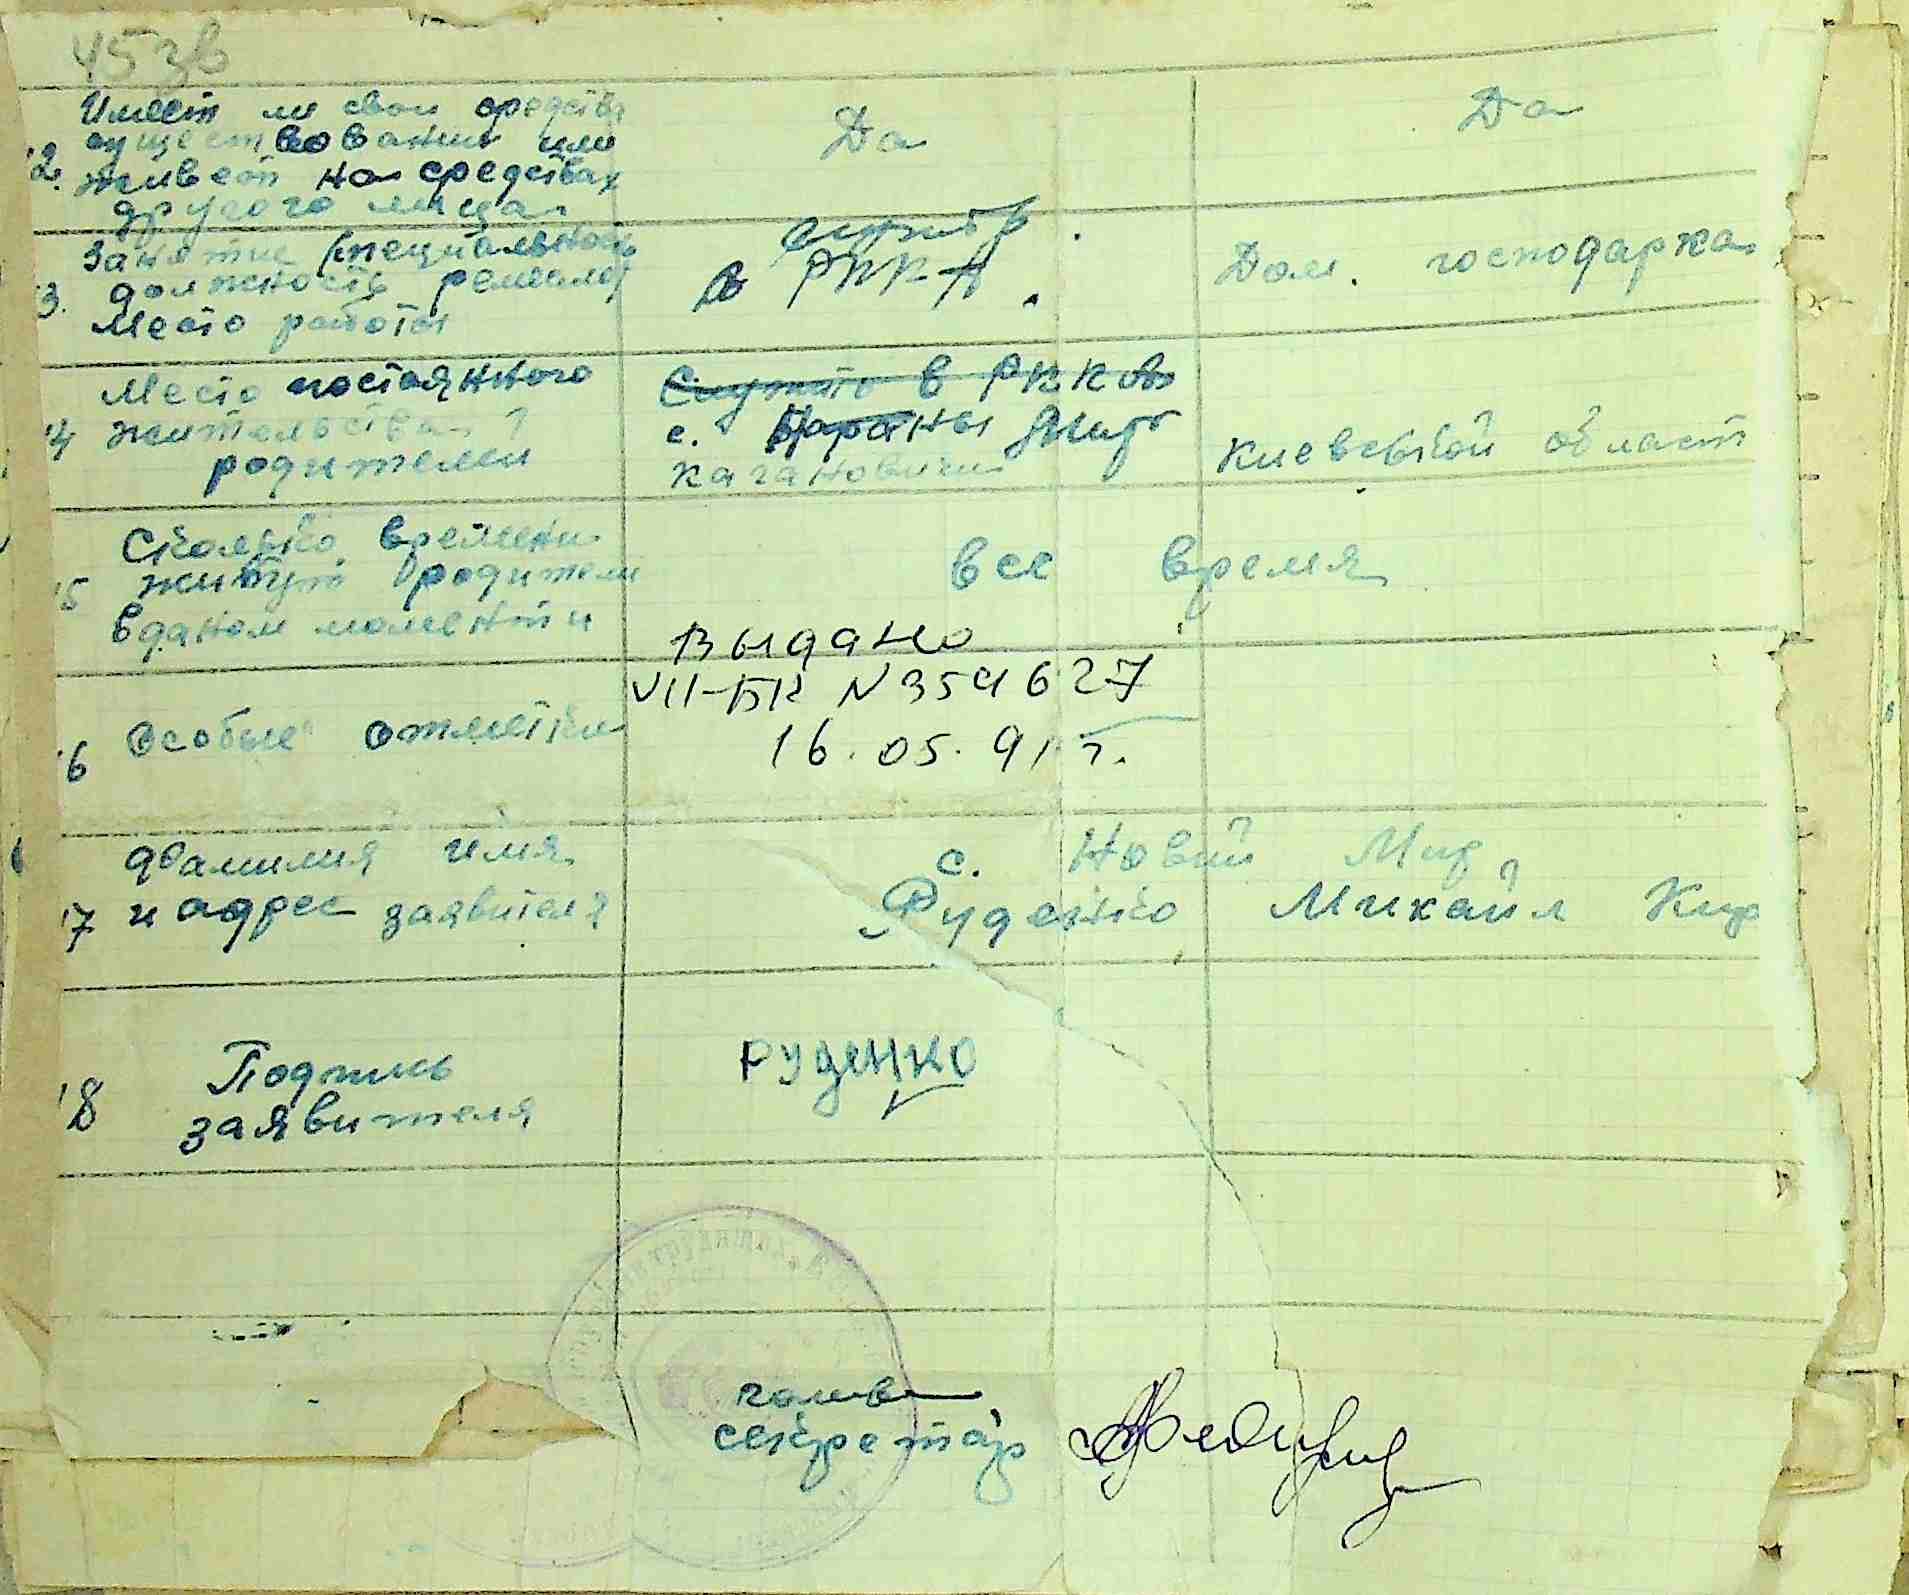 45 зв
12. Имеет ли свои средств
существования или
живет на средствах
другого лица
Да
Да
13. Занятие специальность
должность ремесло
Место работы
служба
в РККА.
Дом. господарка
14 Место постоянного
жительства
родителей
Служит в РКК
с. Мир
Кагановичи
Киевской област
15 Сколько времени
живут родители
в даном моменти
все время
16 Особые отметки
Выдано
VII-БК N 354627
16.05.91 г.
17 Фамилия имя
и адрес заявителя
с. Новий Мир,
Руденко Михайл Кир
18 Подпись
заявителя
Руденко
голова
секретар